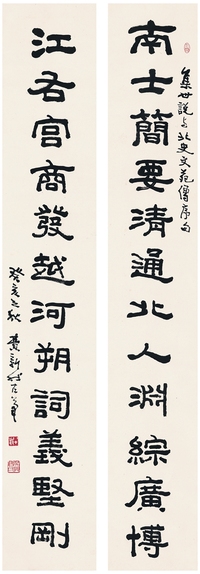 集世說与北史文苑傳序句
南士簡要清通北人淵綜廣博
江右宮商發越河朔詞義堅剛
癸亥之秋 費新我左筆